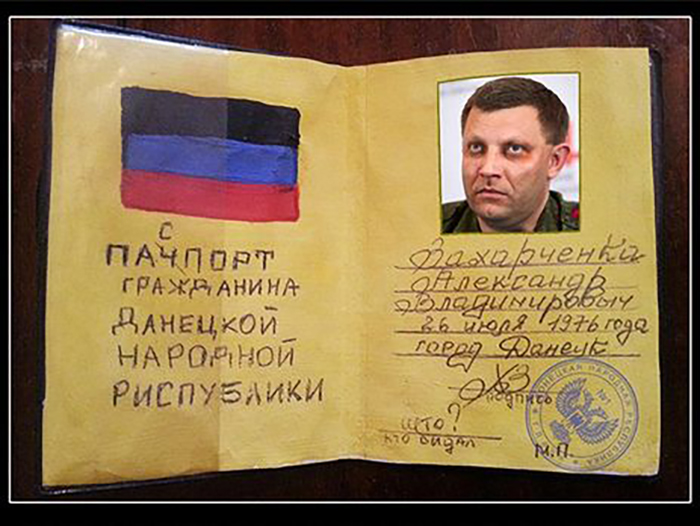 С
ПАЧПОРТ
ГРАЖДАНИНА
ДАНЕЦКОЙ
НАРОДНОЙ
РИСПУБЛИКИ
Захарченка
Александр
Владимировыч
26 июля 1976 года
город Данецк
ХЗ
подпись
ШТО?
кто видал
М.П.
ДОНЕЦКАЯ НАРОДНАЯ РЕСПУБЛИКА